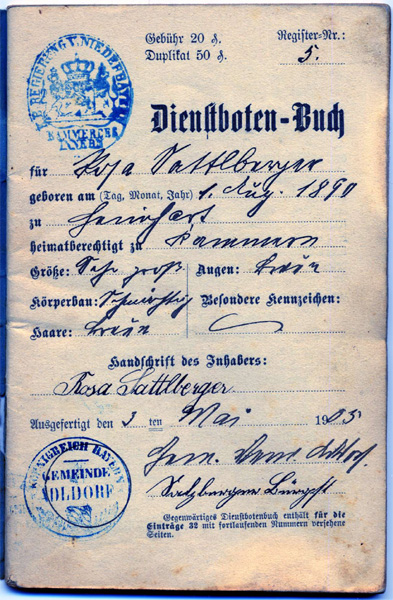 Gebühr 20 ₰. Register-Nr.:
Duplikat 50 ₰. 5.
K. B. REGIERUNG V. NIEDERBAYERN
KAMMER DES INNERN
Dienstboten-Buch
für Rosa Sattlberger
geboren am (Tag, Monat, Jahr) 1. Aug. 1890
zu
heimatberechtigt zu Kammern
Größe: Sehr groß Augen: braun
Körperbau: Schmächtig Besondere Kennzeichen:
Haare: braun
Handschrift des Inhabers:
Rosa Sattlberger
Ausgefertigt den 3 ten Mai 1905
KÖNIGREICH BAYERN
GEMEINDE
Salzberger Bürgst
Gegenwärtiges Dienstbotenbuch enthält für die
Einträge 32 mit fortlaufenden Nummern versehene
Seiten.